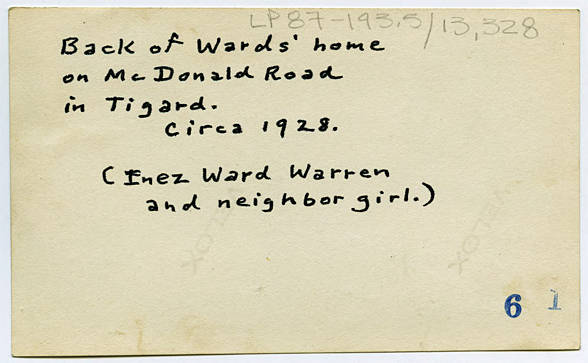 LP87-193.5/13,328
Back of Wards' home
on McDonald Road
in Tigard.
Circa 1928.
(Inez Ward Warren
and neighbor girl.)
VELOX
VELOX
6 1